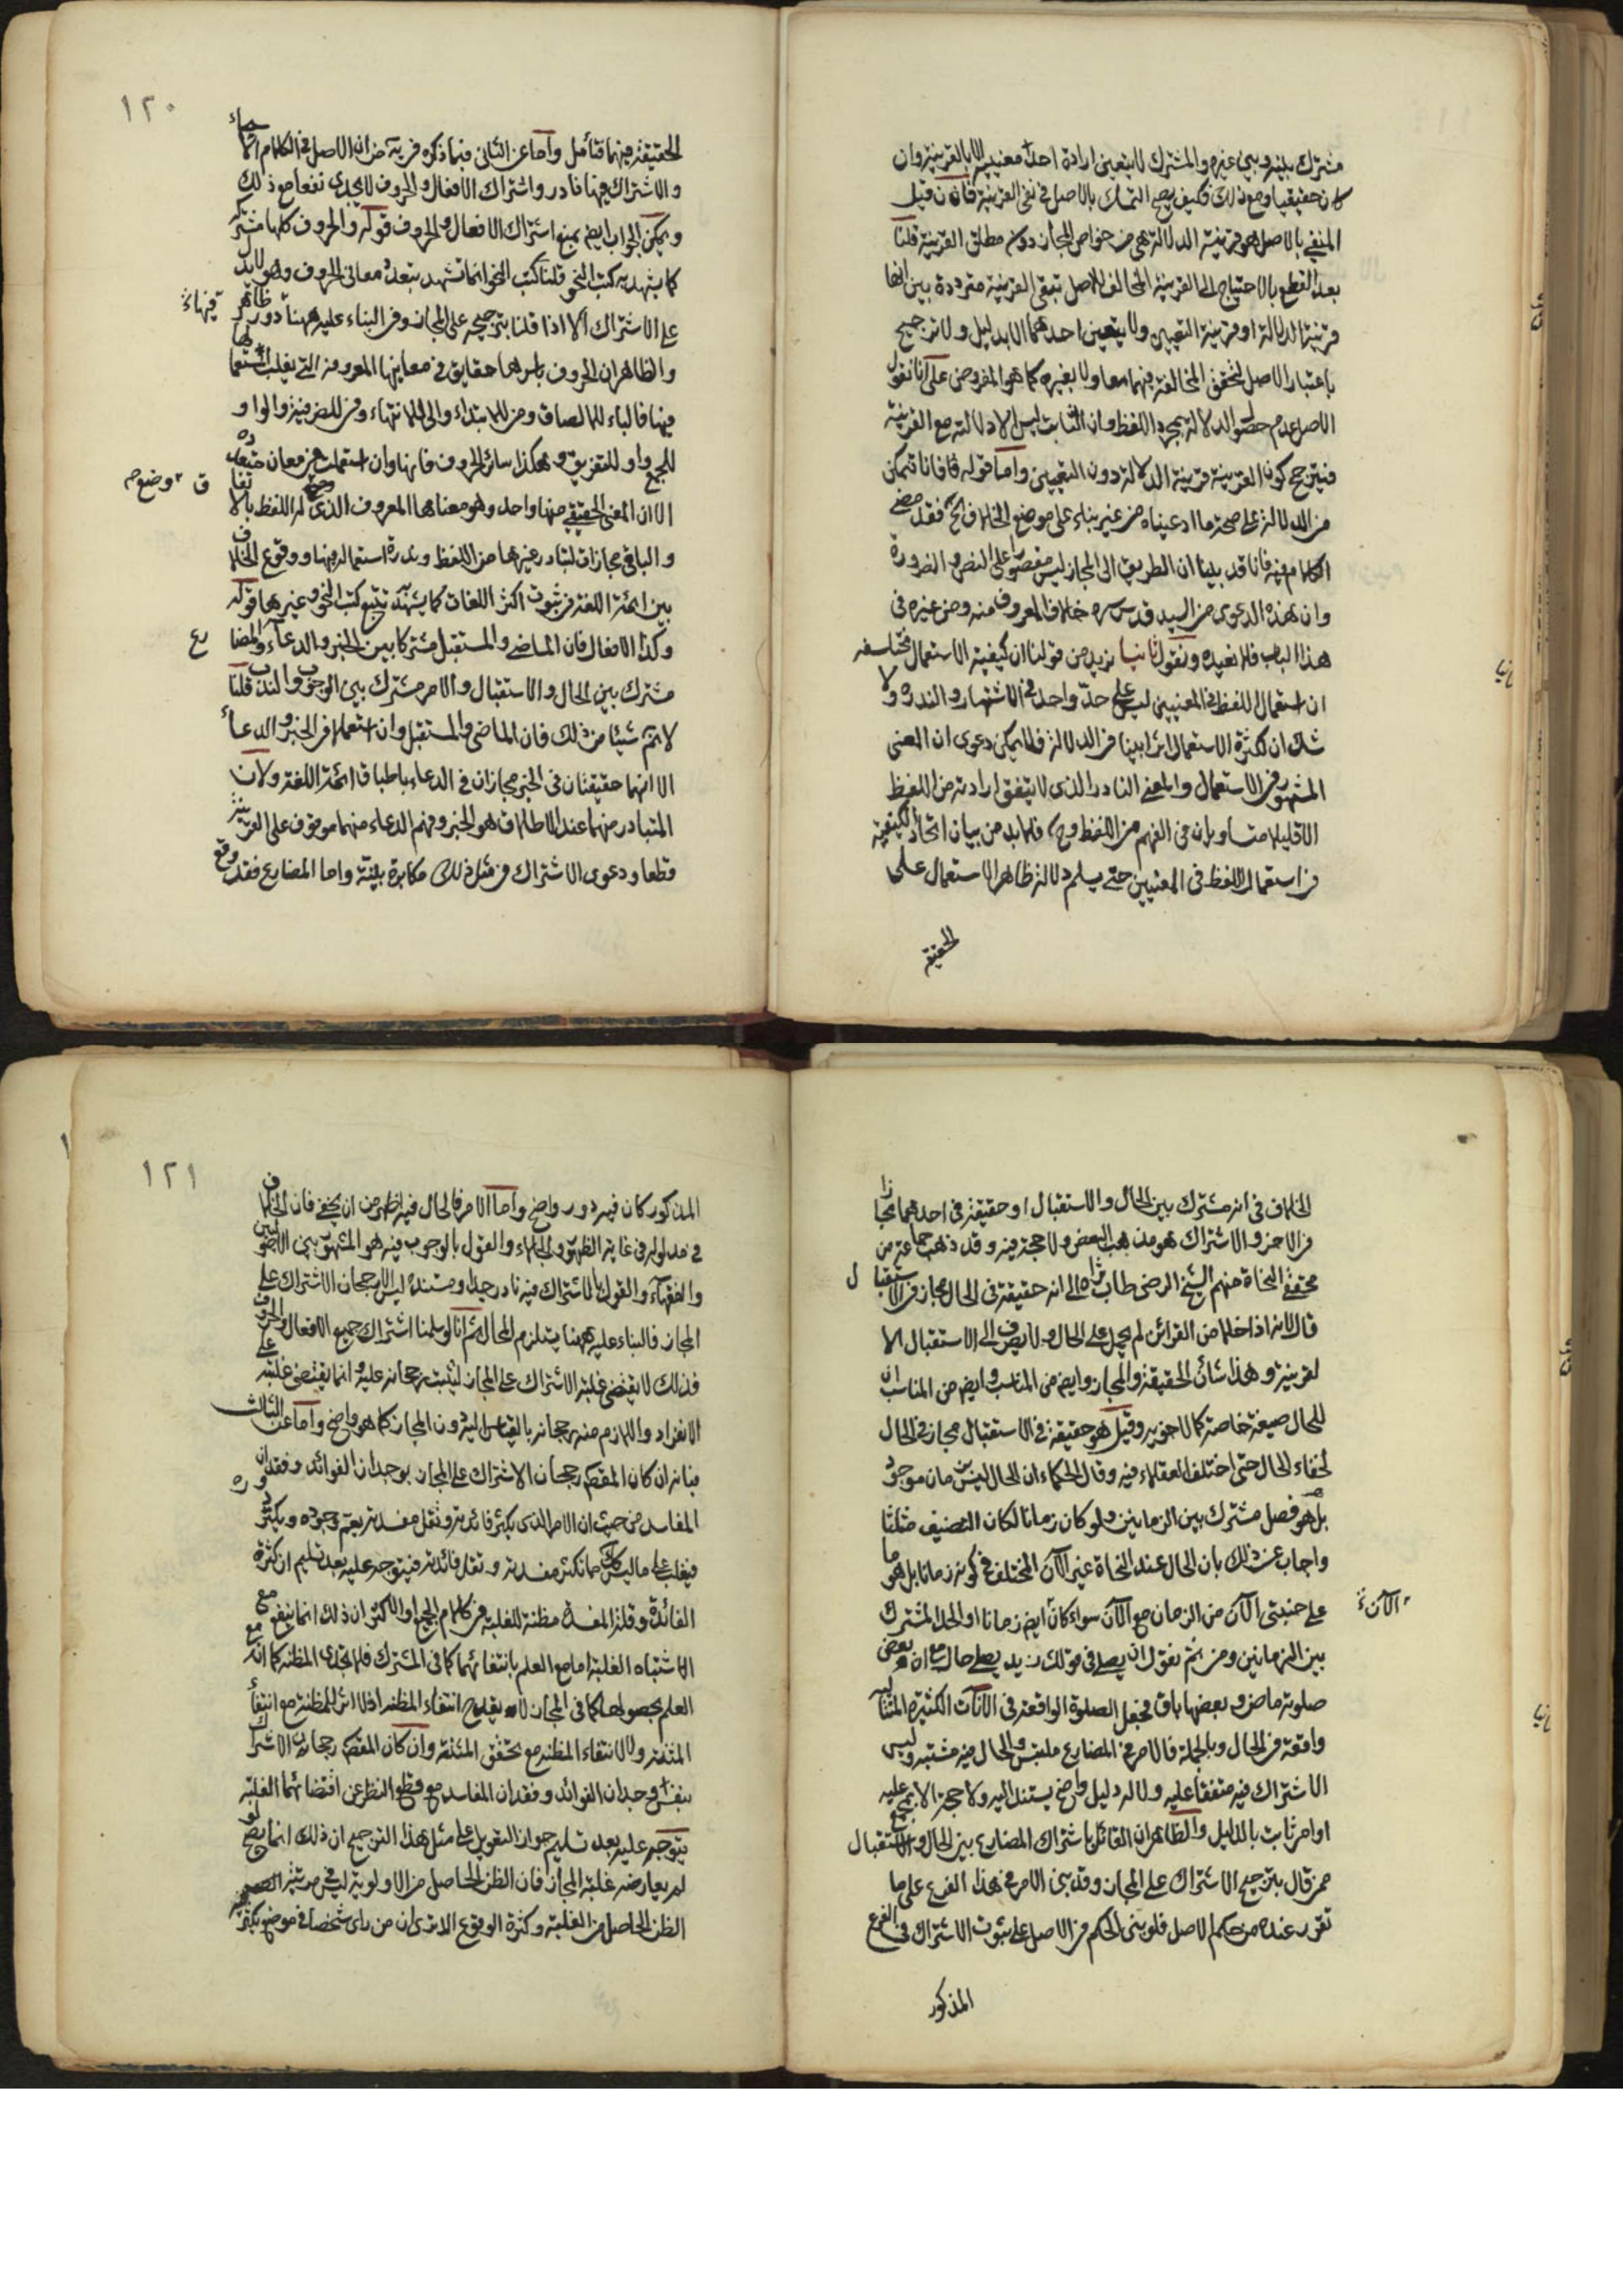 مشترك بينه وبين غيره والمشترك لا يتعين ارادة احد معنييه الا بالقرينة وان
كان حقيقيا ومع ذلك فكيف يصح التمسك بالاصل في نفي القرينة فان قيل
المنفي بالاصل هو قرينة الدلالة هي من خواص المجاز دون مطلق القرينة قلنا
بعد القطع بالاحتياج الى القرينة المخالف للاصل تبقى القرينة مترددة بين انها
قرينة الدلالة او قرينة التعيين ولا يتعين احدهما الا بدليل ولا ترجيح
باعتبار الاصل لتحقق المخالفة فيهما معا ولا بغيره كما هو المفروض على انا نقول
الاصل عدم حصول الدلالة بمجرد اللفظ وان الثابت ليس الا دلالته مع القرينة
فيترجح كون القرينة قرينة الدلالة دون التعيين واما قوله فانا نتمكن
من الدلالة على صحة ما ادعيناه من غير بناء على موضع الخلاف فقد مضى
الكلام فيه فانا قد بينا ان الطريق الى المجاز ليس مقصورا على النص والضرورة
وان هذه الدعوى من السيد قدس سره خلاف المعروف منه ومن غيره في
هذا الباب فلا نعيده ونقول ثانيا نريد من قولنا ان كيفية الاستعمال مختلفة
ان استعمال اللفظ في المعنيين ليس على حد واحد في الاشتهار والندرة ولا
شك ان لكثرة الاستعمال اثرا بينا في الدلالة فلا يمكن دعوى ان المعنى
المشهور في الاستعمال والمعنى النادر الذي لا يتفق ارادته من اللفظ
الا قليلا متساويان في الفهم من اللفظ وح فلا بد من بيان اتحاد الكيفية
في استعمال اللفظ في المعنيين حتى يسلم دلالة ظاهر الاستعمال على
الحقيقة
١٢٠
الحقيقة فيهما فتأمل واما عن الثاني فبما ذكره قريبا من ان الاصل في الكلام الاسماء
والاشتراك فيها نادر واشتراك الافعال والحروف لا يجدي نفعا مع ذلك
ويمكن الجواب ايضا بمنع اشتراك الافعال والحروف قوله والحروف كلها مشتركة
كما يشهد به كتب النحو قلنا كتب النحو انما تشهد بتعدد معاني الحروف وهو لا يدل
على الاشتراك الا اذا قلنا بترجيحه على المجاز وفي البناء عليه ههنا دور ظاهر
والظاهر ان الحروف باسرها حقايق في معانيها المعروفة التي يغلب استعمالها
فيها فالباء للالصاق ومن للابتداء والى للانتهاء وفي للظرفية والواو
للجمع واو للتفريق وهكذا سائر الحروف فانها وان استعملت في معان متعددة
الا ان المعنى الحقيقي منها واحد وهو معناها المعروف الذي وضع له اللفظ بالاتفاق
والباقي مجازات لتبادر غيرها من اللفظ وندرة استعماله فيها ووقوع الخلاف
بين ائمة اللغة في ثبوت اكثر اللغات كما يشهد به تتبع كتب النحو وغيرها قوله
وكذا الافعال فان الماضي والمستقبل مشتركا بين الخبر والدعاء والمضارع
مشترك بين الحال والاستقبال والامر مشترك بين الوجوب والندب قلنا
لا نم شيئا من ذلك فان الماضي والمستقبل وان استعملا في الخبر والدعاء
الا انهما حقيقتان في الخبر مجازان في الدعاء باطباق ائمة اللغة ولان
المتبادر منهما عند الاطلاق هو الخبر وفهم الدعاء منهما موقوف على القرينة
قطعا ودعوى الاشتراك في مثل ذلك مكابرة بينة واما المضارع فقد وقع
الخلاف في انه مشترك بين الحال والاستقبال او حقيقة في احدهما مجاز
في الاخر والاشتراك هو مذهب البعض ولا حجة فيه وقد ذهب جماعة من
محققي النحاة منهم الشيخ الرضي طاب ثراه الى انه حقيقة في الحال مجاز في الاستقبال
قال لانه اذا خلا من القرائن لم يحمل الا على الحال ولا يصرف الى الاستقبال الا
لقرينة وهذا شأن الحقيقة والمجاز وايضا من المناسب ان
للحال صيغة خاصة كما لاخويه وقيل هو حقيقة في الاستقبال مجاز في الحال
لخفاء الحال حتى اختلف العقلاء فيه وقال الحكماء ان الحال ليس بزمان موجود
بل هو فصل مشترك بين الزمانين ولو كان زمانا لكان التنصيف مثلثا
واجاب عن ذلك بان الحال عند النحاة غير الآن المختلف في كونه زمانا بل هو ما
على جنبتي الآن من الزمان مع الآن سواء كان الآن ايضا زمانا او الحد المشترك
بين الزمانين ومن ثم نقول ان يصلي في قولك زيد يصلي حال مع ان بعض
صلوته ماض وبعضها باق فجعل الصلوة الواقعة في الآنات الكثيرة المتتالية
واقعة في الحال وبالجملة فالامر في المضارع ملتبس والحال فيه مشتبه وليس
الاشتراك فيه متفقا عليه ولا له دليل واضح يستند اليه ولا حجة الا بمجمع عليه
او امر ثابت بالدليل والظاهر ان القائل باشتراك المضارع بين الحال والاستقبال
ممن قال بترجيح الاشتراك على المجاز وقد بنى الامر في هذا الفرع على ما
تقرر عنده من حكم الاصل فلو بنى الحكم في الاصل على ثبوت الاشتراك في الفرع
المذكور
١٢١
المذكور كان فيه دور واضح واما الامر فالحال فيه اظهر من ان يخفى فان الخلاف
في مدلوله في غاية الظهور والجلاء والقول بالوجوب فيه هو المشهور بين الاصوليين
والفقهاء والقول بالاشتراك فيه نادر جدا ومستنده ليس الا رجحان الاشتراك على
المجاز فالبناء عليه ههنا يستلزم المحال ثم انا لو سلمنا اشتراك جميع الافعال والحروف
فذلك لا يقتضي غلبة الاشتراك على المجاز ليثبت رجحانه عليه وانما يقتضي غلبته على
الانفراد واللازم منه رجحانه بالقياس اليه دون المجاز كما هو واضح واما عن الثالث
فبانه ان كان المقصود رجحان الاشتراك على المجاز بوجدان الفوائد وفقدان
المفاسد من حيث ان الامر الذي يكثر فائدته وتقل مفسدته يعم وجوده ويكثر دوره
فيغلب على ما ليس كذلك مما تكثر مفسدته وتقل فائدته فيتوجه عليه بعد تسليم ان كثرة
الفائدة وقلة المفسدة مظنة للغلبة في كلام الجميع او الاكثر ان ذلك انما ينفع مع
الاشتباه الغلبة اما مع العلم بانتفائهما كما في المشترك فلا تجدي المظنة كما انه مع
العلم بحصولها كما في المجاز لا يقدح انتفاء المظنة اذ لا اثر للمظنة مع انتفاء
المئنة ولا لانتفاء المظنة مع تحقق المئنة وان كان المقصود رجحان الاشتراك
بنفس وجدان الفوائد وفقدان المفاسد مع قطع النظر عن اقتضائهما الغلبة
يتوجه عليه بعد تسليم جواز التعويل على مثل هذا الترجيح ان ذلك انما يصح لو
لم يعارضه غلبة المجاز فان الظن الحاصل من الاولوية ليس في مرتبة
الظن الحاصل من الغلبة وكثرة الوقوع الا ترى ان من رأى شخصا في موضع يكثر